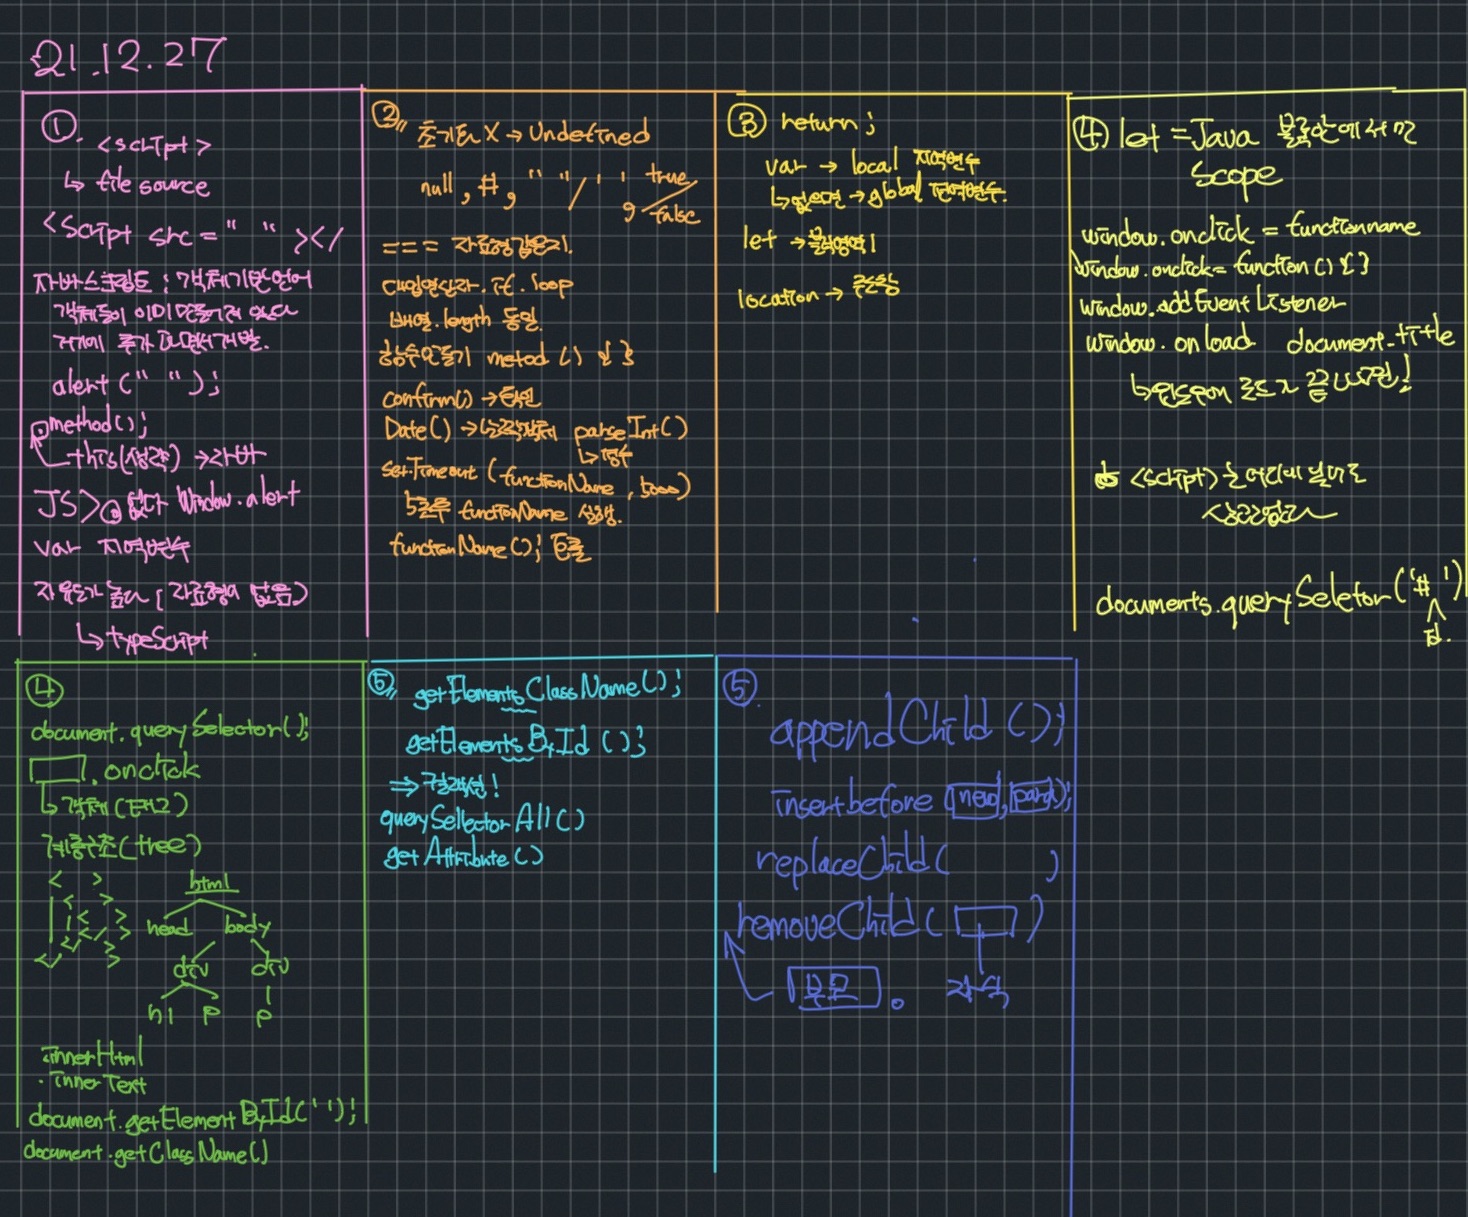 21.12.27
①. <script>
↳ file source
<script src = " " ></
자바스크립트 : 객체기반언어
객체들이 이미 만들어져 있다
거기에 추가 하면서 개발.
alert (" ");
method();
this(생략) → 자바
JS > 없다 Window.alert
var 지역변수
자유도가 높다 (자료형이 없음)
↳ typeScript
② 초기화 X → Undefined
null, #, " " / ' ', true/false
=== 자료형같은지.
대입연산자. if. loop
배열.length 동일.
함수만들기 metod () { }
confirm() → 확인
Date() → 날짜객체 parseInt()
↳ 정수
setTimeout (functionName, 5000)
5초후 functionName 실행.
functionName();
③ return ;
var → local 지역변수
↳ 없으면 → global 전역변수.
let → 블럭영역!
location →
④ let = Java 블록안에서만
Scope
window.onclick = functionname
window.onclick = function () { }
window.addEventListener
window.onload document.title
↳ 윈도우에 로드가 끝나면!
<script>는 어디에 넣어도
상관없다
documents.querySeletor('# ')
④
document.querySelector();
.onclick
↳ 객체 (태그)
계층구조(tree)
< >
< >
< >
</ >
</ >
</ >
html
head body
div div
h1 p p
.innerHtml
.innerText
document.getElementById(' ');
document.getClassName()
⑤ getElementsClassName();
getElementsById ();
⇒
querySellectorAll()
getAttribute()
⑤.
appendChild ();
insertbefore (new, );
replaceChild( )
removeChild( )
부모 . 자식